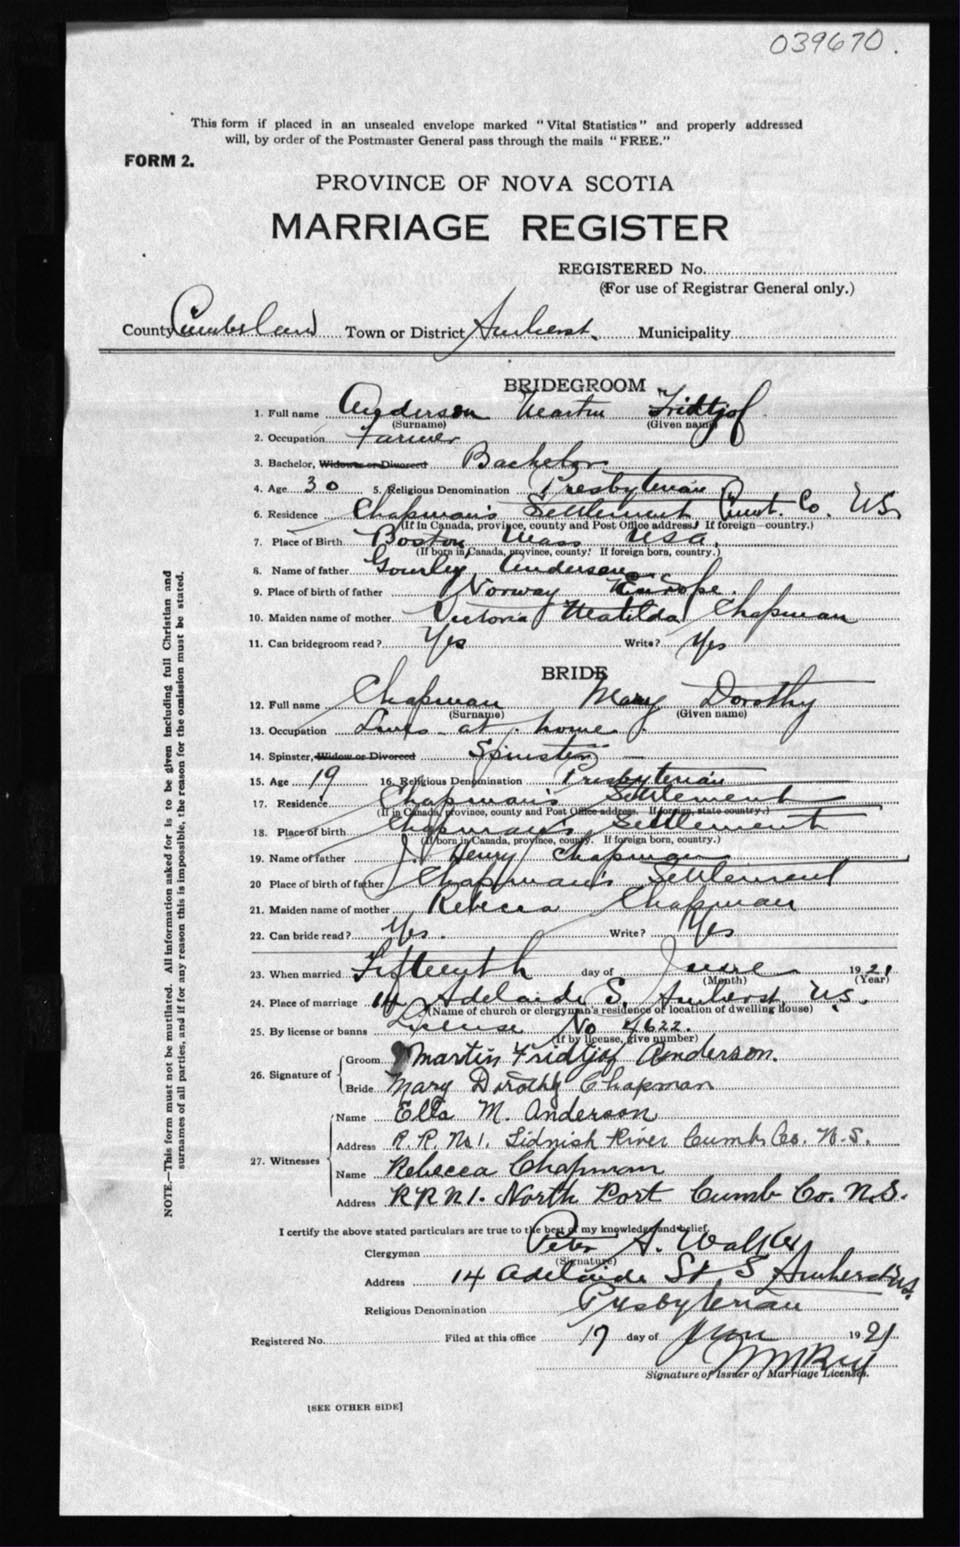 039670.
This form if placed in an unsealed envelope marked "Vital Statistics" and properly addressed
will, by order of the Postmaster General pass through the mails "FREE."
FORM 2.
PROVINCE OF NOVA SCOTIA
MARRIAGE REGISTER
REGISTERED No.
(For use of Registrar General only.)
County Cumberland Town or District Amherst. Municipality
BRIDEGROOM
1. Full name Anderson Martin Fridtjof
(Surname) (Given name)
2. Occupation Farmer
3. Bachelor, Widower or Divorced Bachelor
4. Age 30 5. Religious Denomination Presbyterian
6. Residence Chapman's Settlement Cumb. Co. N.S.
(If in Canada, province, county and Post Office address. If foreign—country.)
7. Place of Birth Boston Mass USA.
(If born in Canada, province, county. If foreign born, country.)
8. Name of father Anderson
9. Place of birth of father Norway Europe.
10. Maiden name of mother Victoria Matilda Chapman
11. Can bridegroom read? Yes Write? Yes
BRIDE
12. Full name Chapman Mary Dorothy
(Surname) (Given name)
13. Occupation Lives at home
14. Spinster, Widow or Divorced Spinster
15. Age 19 16. Religious Denomination Presbyterian
17. Residence Chapman's Settlement
(If in Canada, province, county and Post Office address. If foreign, state country.)
18. Place of birth Chapman's Settlement
(If born in Canada, province, county. If foreign born, country.)
19. Name of father J. Henry Chapman
20 Place of birth of father Chapman's Settlement
21. Maiden name of mother Rebecca Chapman
22. Can bride read? Yes. Write? Yes
23. When married Fifteenth day of June 1921
(Month) (Year)
24. Place of marriage 14 Adelaide S. Amherst, N.S.
(Name of church or clergyman's residence or location of dwelling house)
25. By license or banns License No 4622.
(If by license, give number)
26. Signature of Groom Martin Fridtjof Anderson.
Bride Mary Dorothy Chapman
27. Witnesses Name Ella M. Anderson
Address R.R. No 1. Tidnish River Cumb. Co. N.S.
Name Rebecca Chapman
Address R R N 1. North Port Cumb Co. N.S.
I certify the above stated particulars are true to the best of my knowledge and belief.
Clergyman Peter A. Walker
(Signature)
Address 14 Adelaide St S Amherst N.S.
Religious Denomination Presbyterian
Registered No. Filed at this office 17 day of June 1921
Signature of Issuer of Marriage Licenses.
[SEE OTHER SIDE]
NOTE.—This form must not be mutilated. All information asked for is to be given including full Christian and
surnames of all parties, and if for any reason this is impossible, the reason for the omission must be stated.